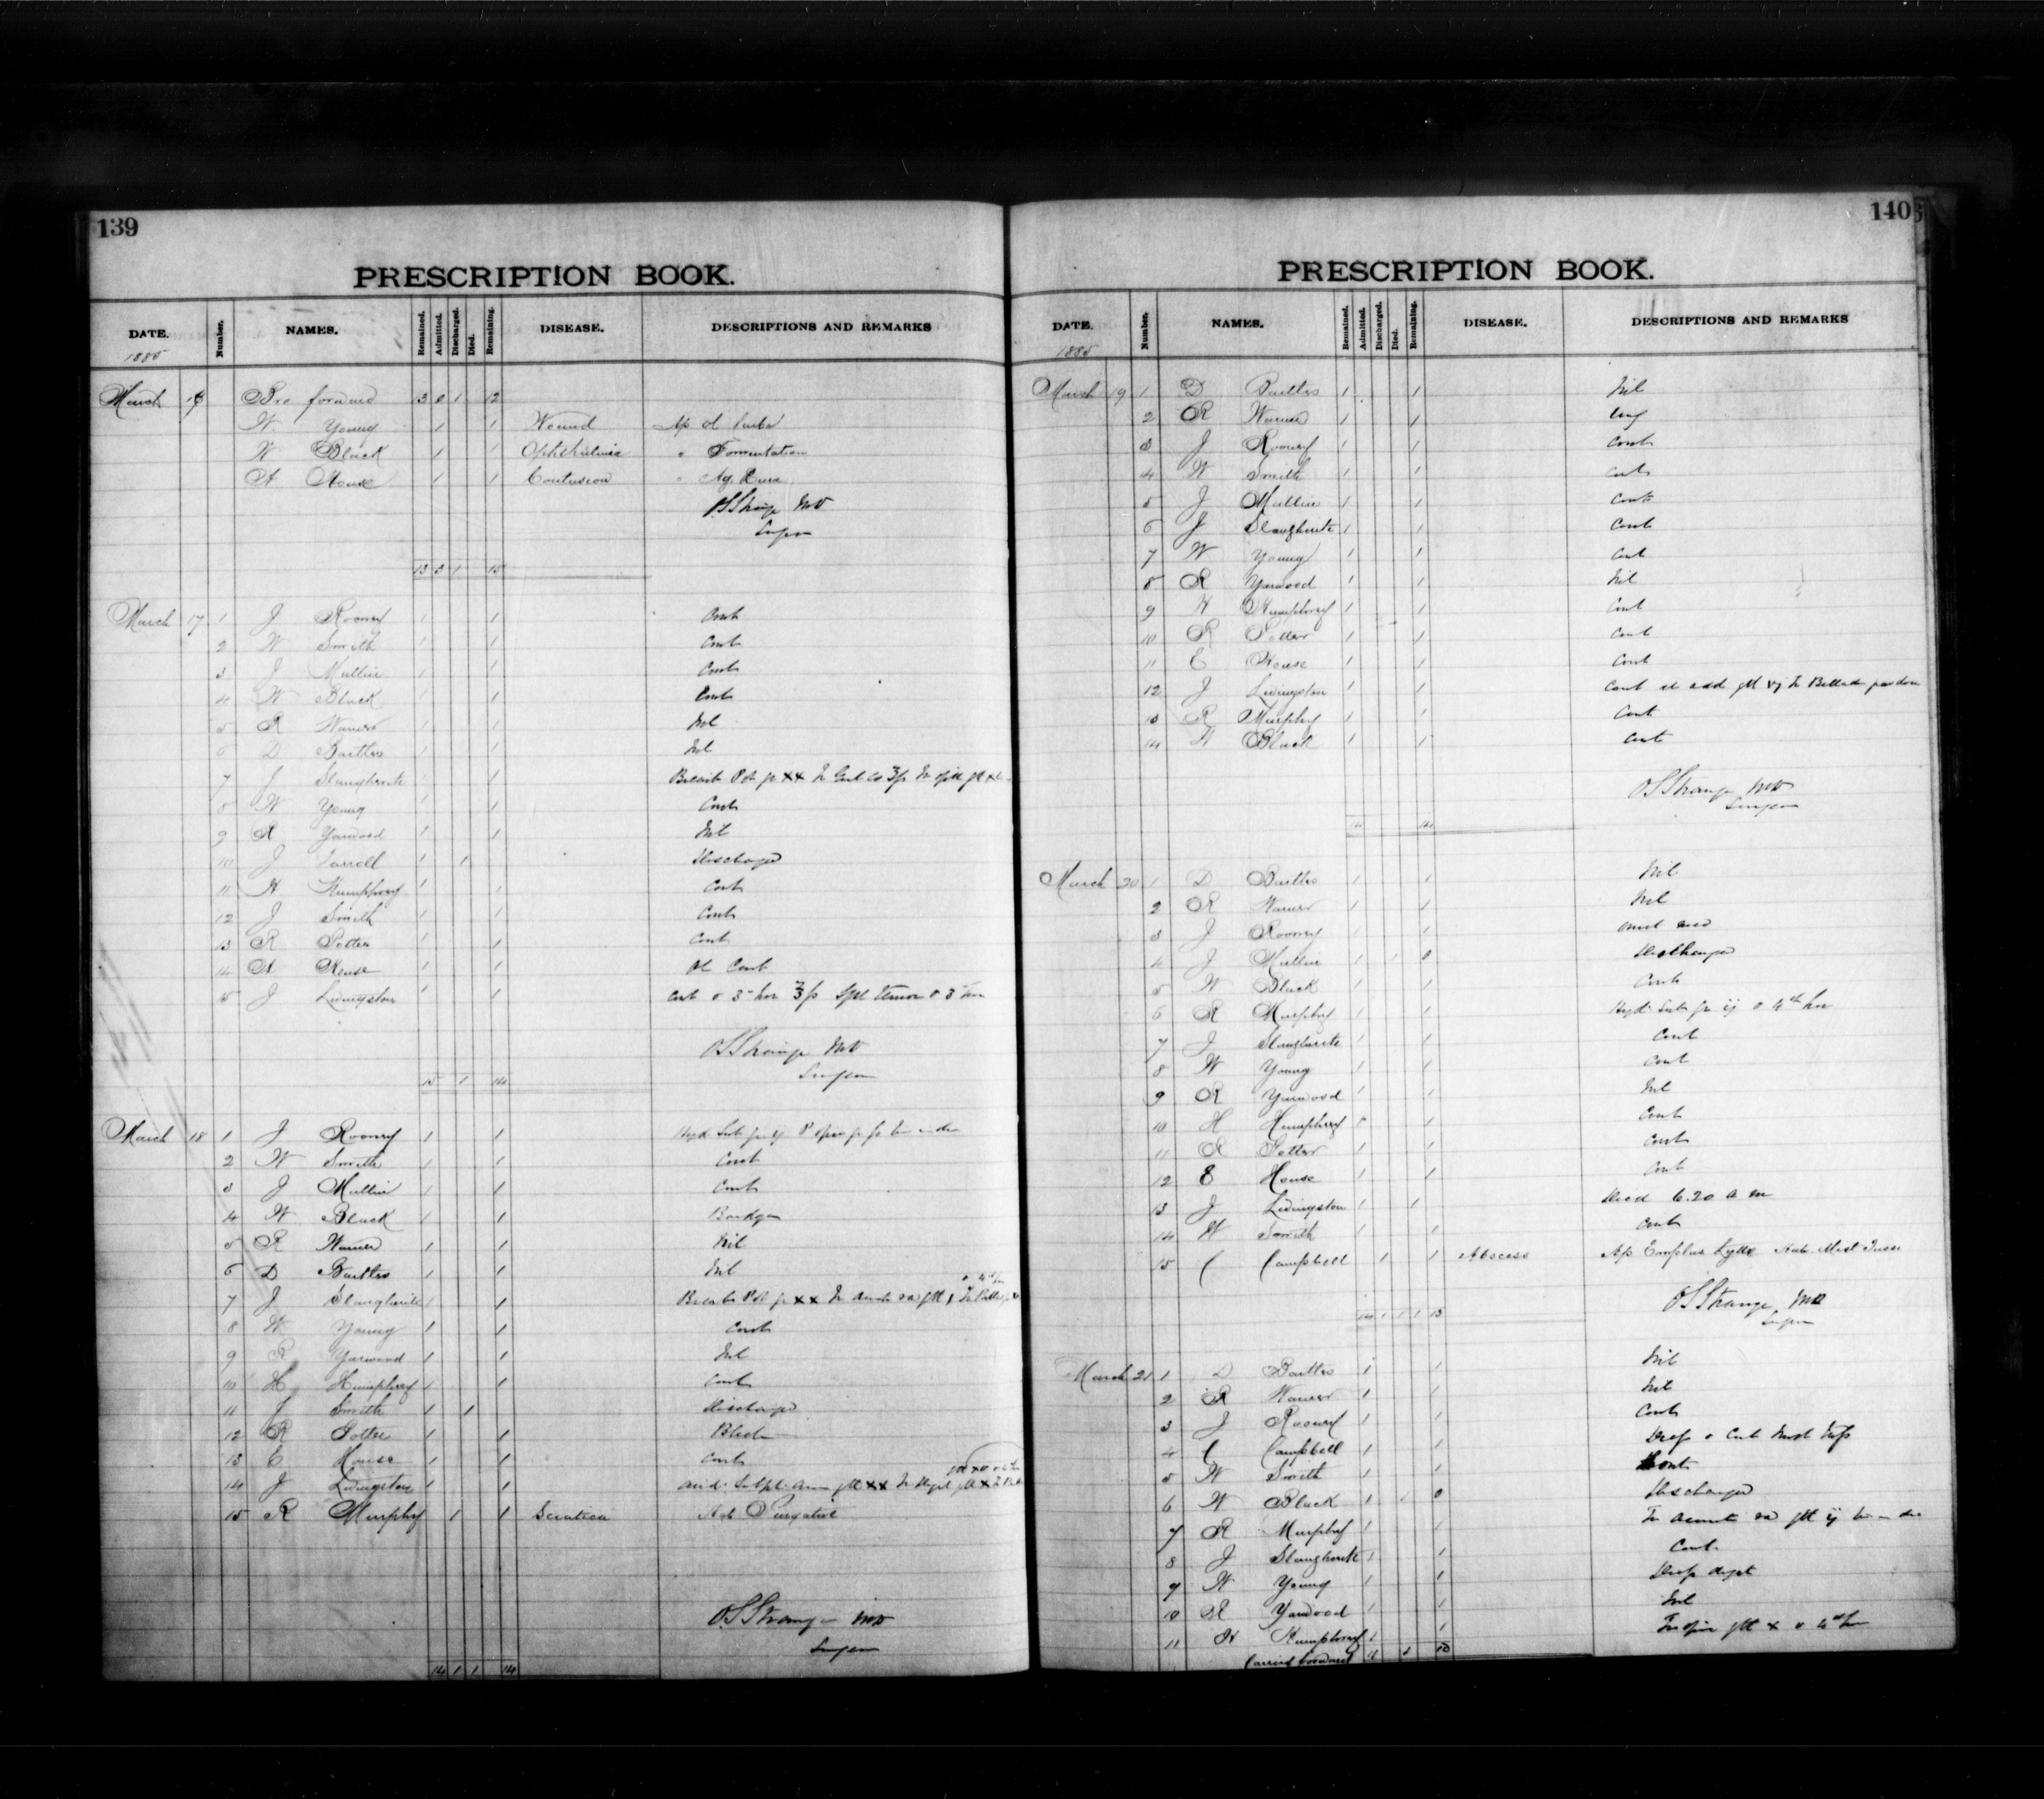 139
PRESCRIPTION BOOK.
DATE. Number. NAMES. Remained. Admitted. Discharged. Died. Remaining. DISEASE. DESCRIPTIONS AND REMARKS
1885
March 16 Bro forward 13 0 1 12
W Young 1 1 Wound Ap ol Carbol
W Black 1 1 Ophthalmia " Fomentation
A House 1 1 Contusion " Aq. Pura
O.S. Strange MD
Surgeon
13 3 1 15
March 17 1 J Rooney 1 1 Cont
2 W Smith 1 1 Cont
3 J Mullin 1 1 Cont
4 W Black 1 1 Cont
5 R Warner 1 1 Nil
6 D Baitles 1 1 Nil
7 J Slaughwite 1 1 Bicarb Pot gr xx
8 W Young 1 1 Cont
9 R Yarwood 1 1 Nil
10 J Farrell 1 1 Discharged
11 H Humphrey 1 1 Cont
12 J Smith 1 1 Cont
13 R Potter 1 1 Cont
14 A House 1 1 Ol Cont
15 J Livingston 1 1 Cont
O.S. Strange MD
Surgeon
15 1 14
March 18 1 J Rooney 1 1 Hyd. Sub gr ij
2 W Smith 1 1 Cont
3 J Mullin 1 1 Cont
4 W Black 1 1 Bandage
5 R Warner 1 1 Nil
6 D Baitles 1 1 Nil
7 J Slaughwite 1 1 Bicarb Pot gr xx
8 W Young 1 1 Cont
9 R Yarwood 1 1 Nil
10 H Humphrey 1 1 Cont
11 J Smith 1 1 Discharged
12 R Potter 1 1
13 E House 1 1 Cont
14 J Livingston 1 1
15 R Murphy 1 1 Sciatica Hab Purgative
O.S. Strange MD
Surgeon
14 1 1 14
140
PRESCRIPTION BOOK.
DATE. Number. NAMES. Remained. Admitted. Discharged. Died. Remaining. DISEASE. DESCRIPTIONS AND REMARKS
1885
March 19 1 D Baitles 1 1 Nil
2 R Warner 1 1
3 J Rooney 1 1 Cont
4 W Smith 1 1 Cont
5 J Mullin 1 1 Cont
6 J Slaughwite 1 1 Cont
7 W Young 1 1 Cont
8 R Yarwood 1 1 Nil
9 H Humphrey 1 1 Cont
10 R Potter 1 1 Cont
11 E House 1 1 Cont
12 J Livingston 1 1 Cont et add gtt vj
13 R Murphy 1 1 Cont
14 W Black 1 1 Cont
O.S. Strange MD
Surgeon
14 14
March 20 1 D Baitles 1 1 Nil
2 R Warner 1 1 Nil
3 J Rooney 1 1 Omit med
4 J Mullin 1 1 0 Discharged
5 W Black 1 1 Cont
6 R Murphy 1 1 Hyd. Sub gr ij 4th hr
7 J Slaughwite 1 1 Cont
8 W Young 1 1 Cont
9 R Yarwood 1 1 Nil
10 H Humphrey 1 1 Cont
11 R Potter 1 1 Cont
12 E House 1 1 Cont
13 J Livingston 1 1 Died 6.20 a m
14 W Smith 1 1 Cont
15 C Campbell 1 1 Abscess Ap. Emplas Lyttae Hab. Mist Tussi
O.S. Strange MD
Surgeon
14 1 1 1 13
March 21 1 D Baitles 1 1 Nil
2 R Warner 1 1 Nil
3 J Rooney 1 1 Cont
4 C Campbell 1 1
5 W Smith 1 1 Cont
6 W Black 1 1 0 Discharged
7 R Murphy 1 1
8 J Slaughwite 1 1 Cont.
9 W Young 1 1
10 R Yarwood 1 1 Nil
11 H Humphrey 1 1 Tr opii gtt x 4th hr
Carried forward 11 1 10